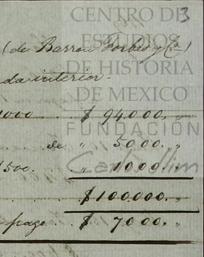 3
CENTRO DE
ESTUDIOS
DE HISTORIA
DE MEXICO
FUNDACIÓN
(de Barron Forbes y Cª)
da interior.
000 $ 94000. "
de " 5000. "
500. " 1000. "
$ 100,000. "
pago $ 7000. "